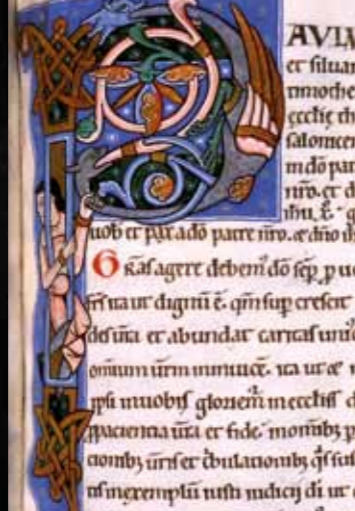 PAVLV
et siluan
timothe
ecclie th
salonicen
in dō pat
nrō. et d
ihu x̄. g
uob et pax a dō patre nrō. et dño ih
Gras agere debem dō sēp p uob
frs ita ut dignū ē. qm̄ sup crescit
des ura et abundat caritas uni
omnium urm inuicē. ita ut et n
ipsi in uobis gloriem in ecclis d
paciencia ura et fide. in omibz p
cionibz uris et tbulacionibz qs sus
tis in exemplū iusti iudicij di ut d